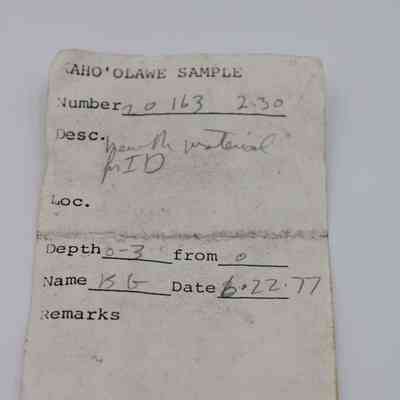 KAHO'OLAWE SAMPLE
Number 20163 2.30
Desc. hearth material
for ID
Loc.
Depth 0-3 from 0
Name KG Date 6.22.77
Remarks